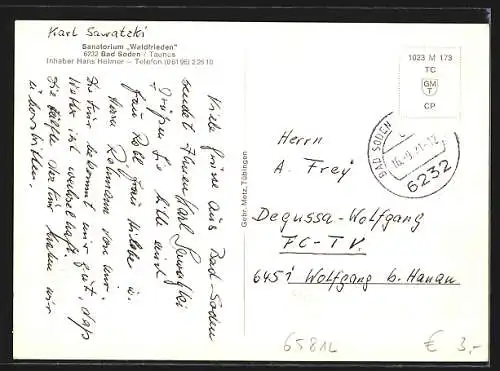 Karl Sawatzki
Sanatorium „Waldfrieden“
6232 Bad Soden / Taunus
Inhaber Hans Helmer — Telefon (06196) 22610
Viele Grüße aus Bad-Soden
sendet Ihnen Karl Sawatzki
Grüßen Sie bitte auch
Frau Roll Frau u.
Herrn von mir.
Die Kur bekommt mir gut, das
Wetter ist wechselhaft.
Die Hälfte der Kur haben wir
überstritten.
Gebr. Metz, Tübingen
1023 M 173
TC
GM
T
CP
BAD SODEN
6232
Herrn
A. Frey
Degussa-Wolfgang
FC-TV.
6451 Wolfgang b. Hanau
6581L
€ 3,-